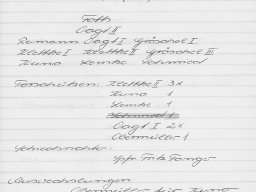 Foth
Vogt II
Reimann Vogt I Gröschel I
Klettke I Klettke II Gröschel III
Kuno Lemke Schmied
Torschützen: Klettke II 3x
Kuno 1
Lemke 1
Schmied 1
Vogt I 2x
Obermüller 1
Schiedsrichter:
Spfr. Fritz
Auswechslungen
Obermüller für Kuno